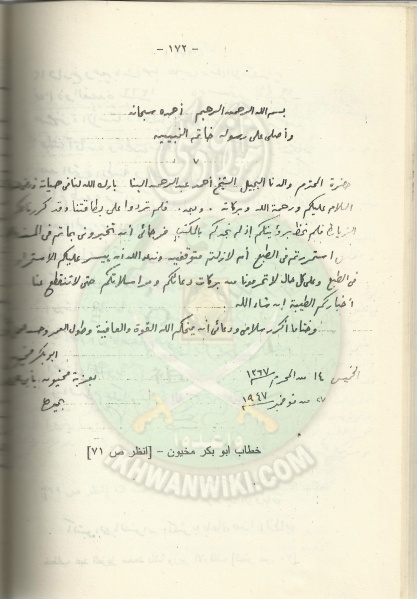 - ١٧٢ -
بسم الله الرحمن الرحيم أحمده سبحانه
وأصلى على رسوله خاتم النبيين
حضرة المحترم والدنا البجيل الشيخ أحمد عبد الرحمن البنا بارك الله لنا فى حياته
السلام عليكم ورحمة الله وبركاته . وبعد . فلم تردوا على بطاقتنا وقد كررنا
فلم نحظ برؤيتكم إذ لم نجدكم بالمكتب فرجائى أن تخبرونى بما تم فى
استمررتم فى الطبع أم لازلتم متوقفين ونسأل الله أن ييسر عليكم الاستمرار
فى الطبع وعلى كل حال لا تحرمونا من بركات دعائكم ومراسلاتكم حتى لا تنقطع عنا
أخباركم الطيبة إن شاء الله
وختاما أكرر سلامى ودعائى أن يمنحكم الله القوة والعافية وطول العمر وحسن
أبو بكر مخيون
الخميس ١٤ من المحرم ١٣٦٧
بعزبة مخيون
٢٧ من نوفمبر ١٩٤٧
خطاب أبو بكر مخيون - [انظر ص ٧١]
IKHWANWIKI.COM